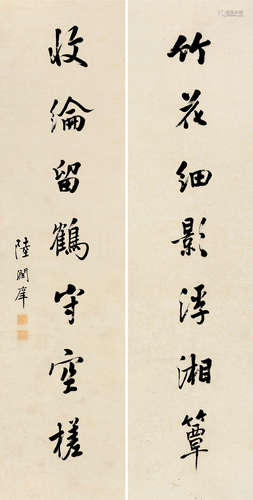 竹花细影浮湘簟
收綸留鶴守空槎
陸潤庠